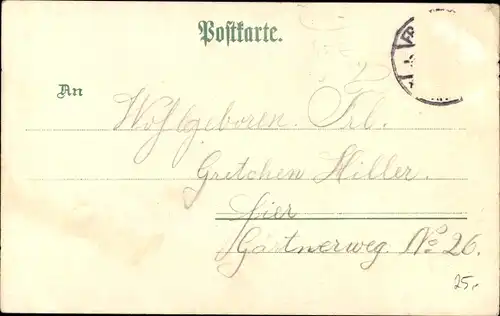 Postkarte.
An
Wohlgeboren. Frl.
Gretchen Hiller.
hier
Gärtnerweg. No 26.
25,-